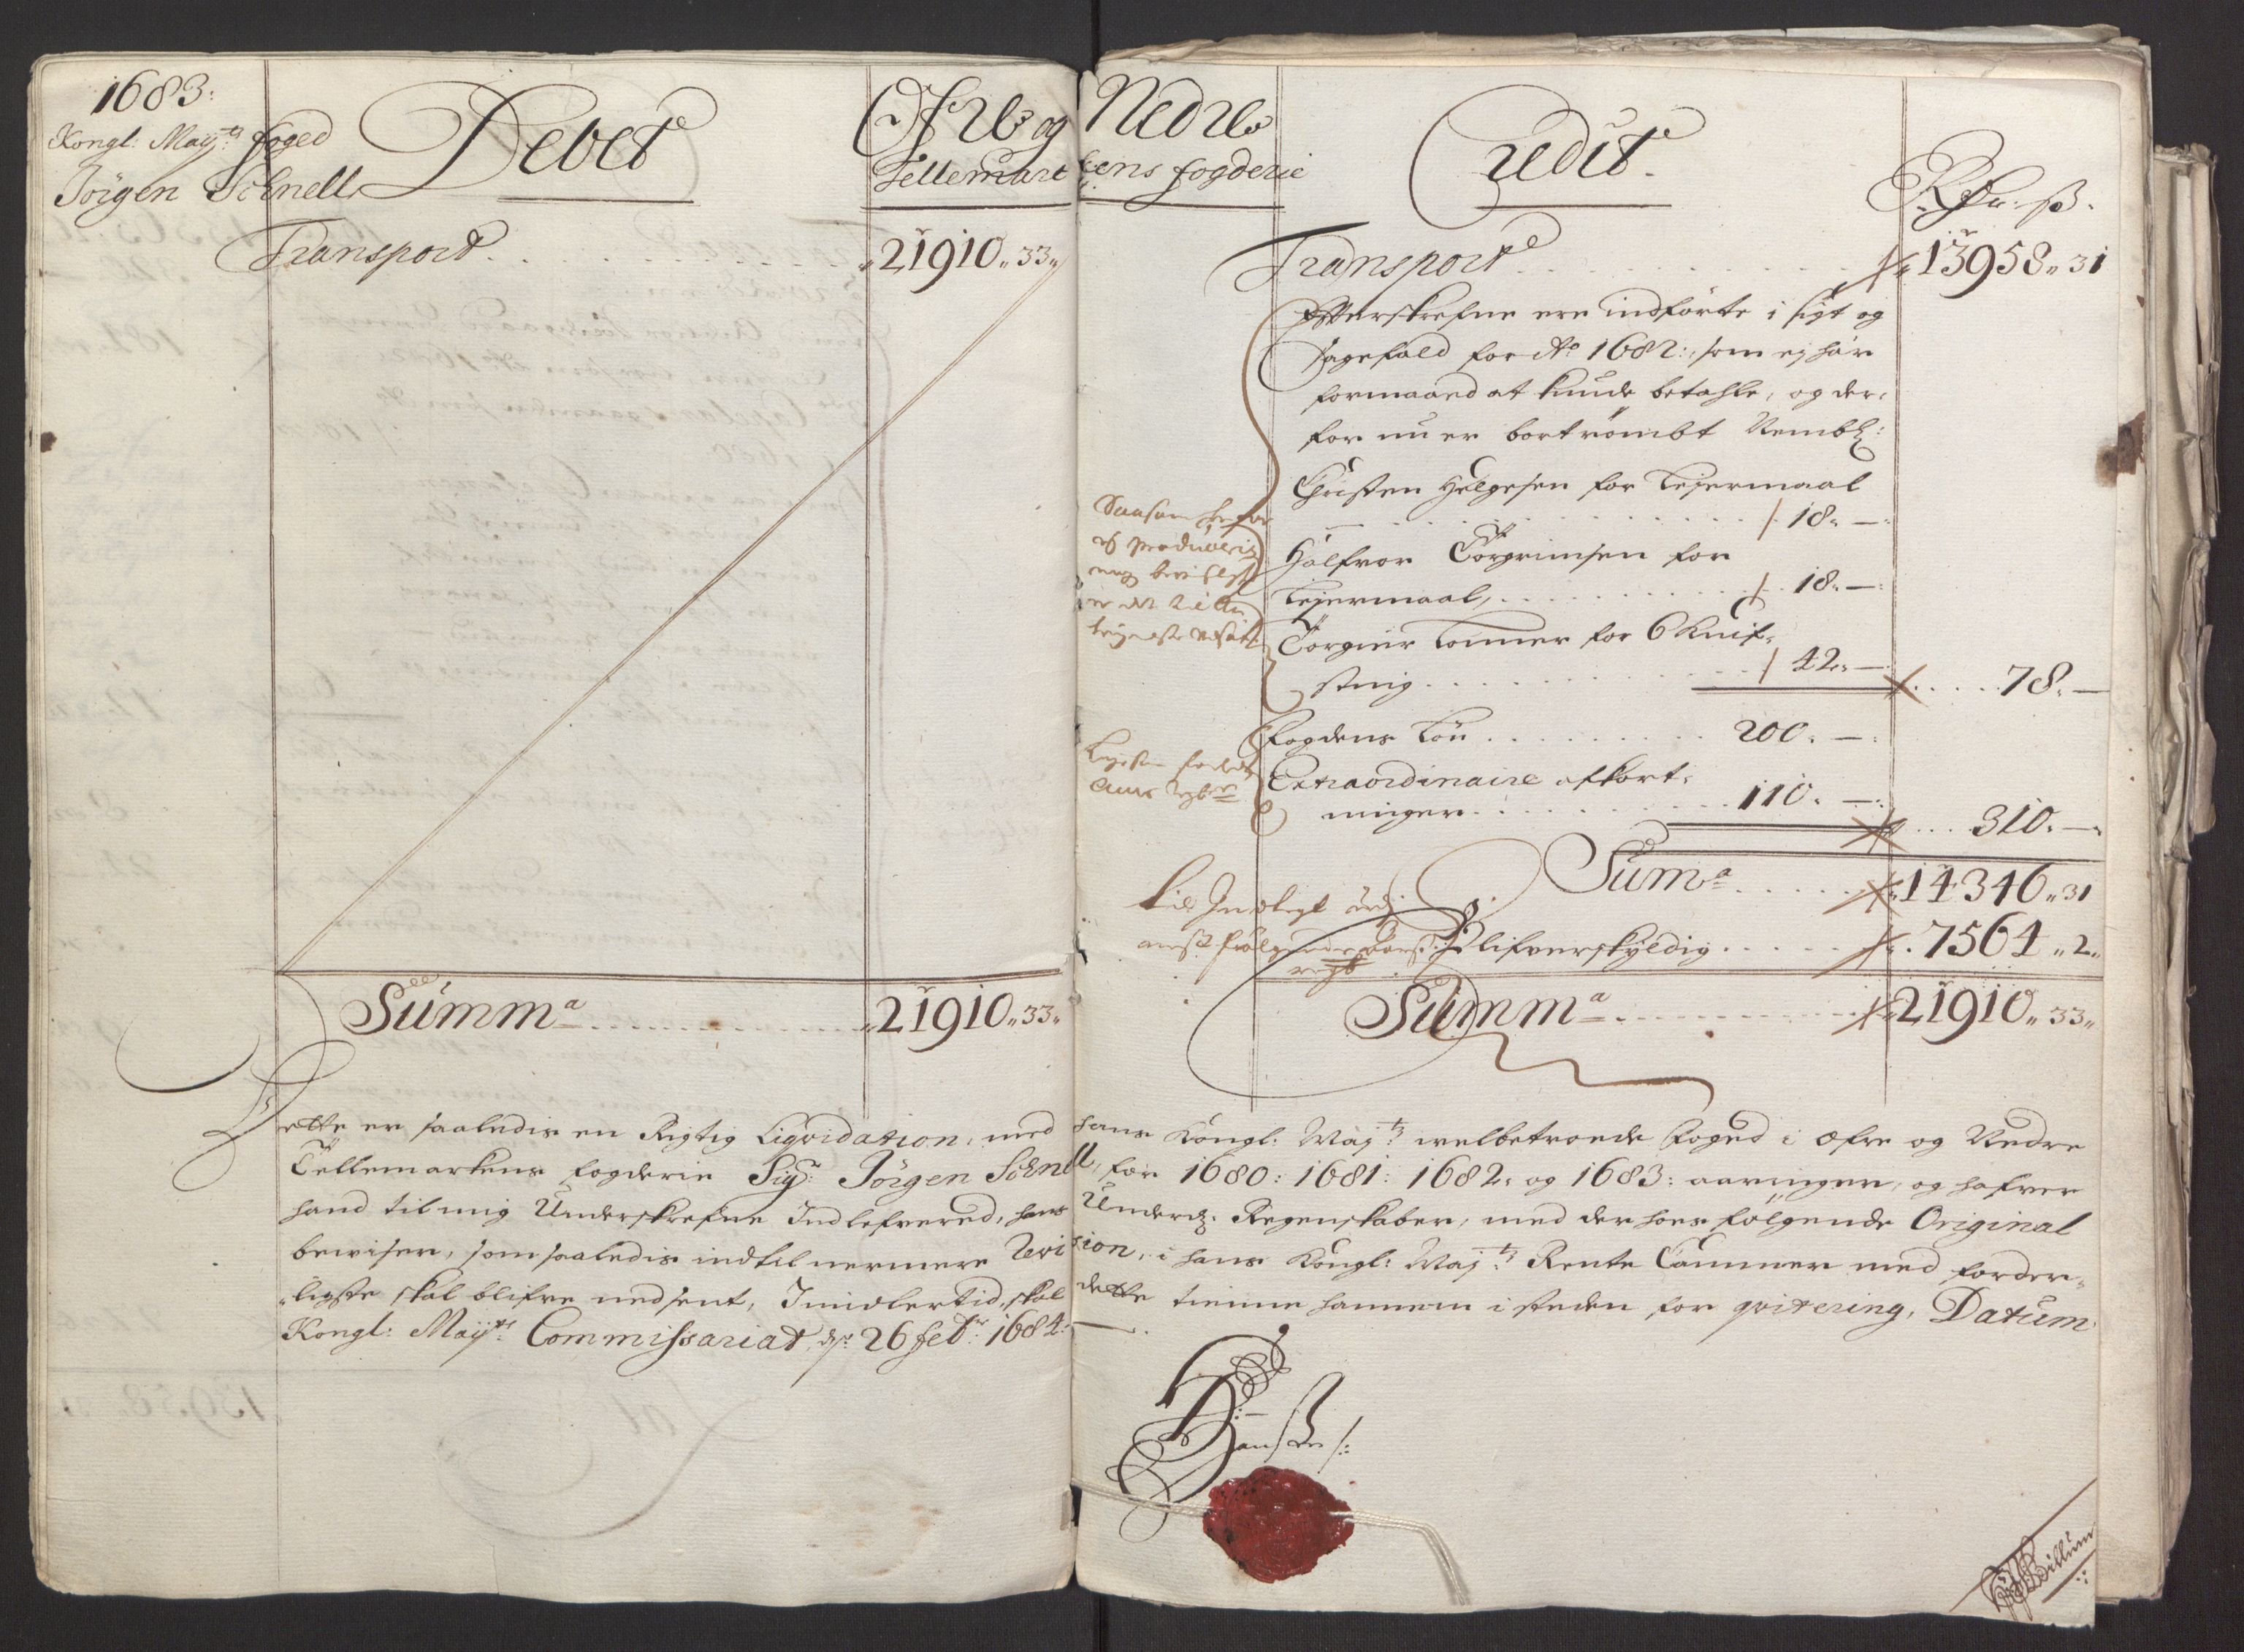 1683:
Kongl: Maÿ:ts foged
Jörgen Schnell
Debet
Öfre og
Tellemarc
Transport . . . . . . . . . . . 21910,, 33,,
Summa . . . . . . . . . . . 21910,, 33,,
Nedre
kens fogderie
Credit
Rdr. ß.
Transport . . . . . . . . . . . 13958,, 31
Efterskrefne ere indförte i sigt og
sagefald for Ao 1682: som ej har
formaaed at kunde betahle, og der,
for nu er bortrömbt Nembl:
Christen Helgesen for Leyermaal
. . . . . . . . . . . 18. —
Halfvor Torgrimsen for
Leyermaal, . . . . . . . . . . . 18. —
Torgier Tonner for 6 Knif,
sting . . . . . . . . . . . 42. —
. . . . 78. —
Fogdens Lön . . . . . . . . . 200. —
Extraordinaire afkort,
ninger . . . . . . . . . 110. —
. . . 310. —
Suma . . . . . 14346,, 31
Blifver skyldig . . . . . 7564,, 2,,
Summa . . . . . . . . . . . 21910,, 33,,
Dette er saaledis en Rigtig Liqvidation, med hans Kongl: Maj:ts welbetroede foged i Ofre og Nedre
Tellemarkens fogderie Sigr: Jörgen Schnell, for 1680: 1681: 1682, og 1683: aaringer, og hafver
hand til mig Underskrefne Indlefvered, hans Underd: Regenskaber, med der hoes fölgende Original
beviser, som saaledis indtil nermere Revision, i hans Kongl: Maj:ts Rente Cammer med forder,
ligste skal blifve nedsent, Imidlertid skal dette tienne hannem i steden for qvitering, Datum
Kongl: Maÿ:ts Commissariat, d: 26 febr: 1684: —
Hansen
Billum